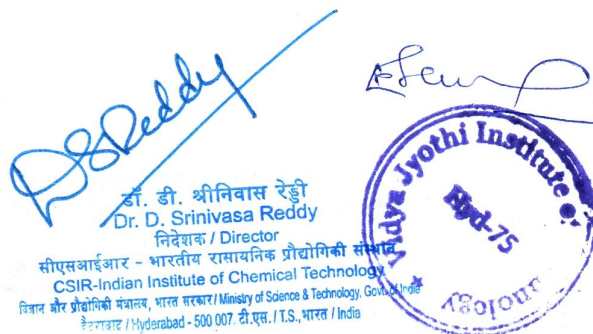 DSReddy
डॉ. डी. श्रीनिवास रेड्डी
Dr. D. Srinivasa Reddy
निदेशक / Director
सीएसआईआर - भारतीय रासायनिक प्रौद्योगिकी संस्थान
CSIR-Indian Institute of Chemical Technology
विज्ञान और प्रौद्योगिकी मंत्रालय, भारत सरकार / Ministry of Science & Technology, Govt. of India
हैदराबाद / Hyderabad - 500 007. टी.एस. / T.S., भारत / India
Vidya Jyothi Institute of
Hyd-75